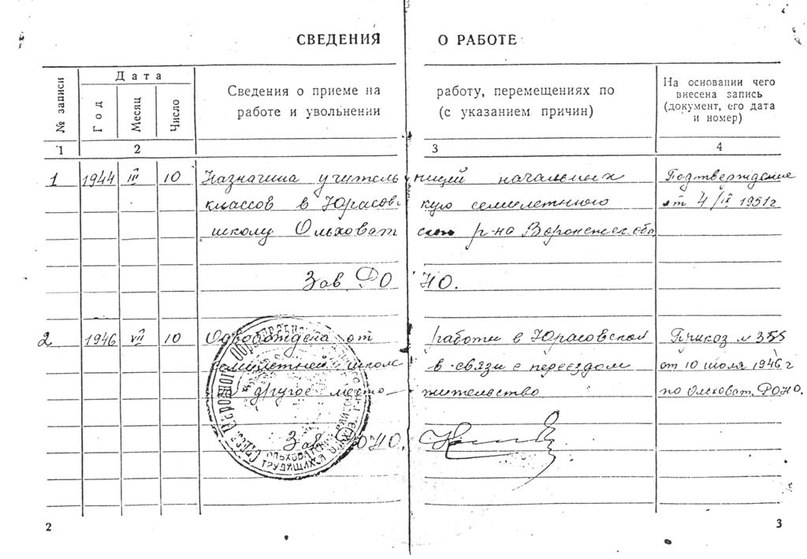 СВЕДЕНИЯ О РАБОТЕ
№ записи
Дата
Год
Месяц
Число
Сведения о приеме на работу, перемещениях по
работе и увольнении (с указанием причин)
На основании чего
внесена запись
(документ, его дата
и номер)
1 2 3 4
1 1944 III 10 Назначена учительницей начальных Подтверждение
классов в Юрасовскую семилетнюю от 4/IV 1951 г
школу Ольховатского р-на Воронежск. обл.
Зав. РОНО.
2 1946 VII 10 Освобождена от работы в Юрасовской Приказ № 355
семилетней школе в связи с переездом от 10 июля 1946 г
на другое место жительство по Ольховат. РОНО.
Зав. РОНО.
2 3